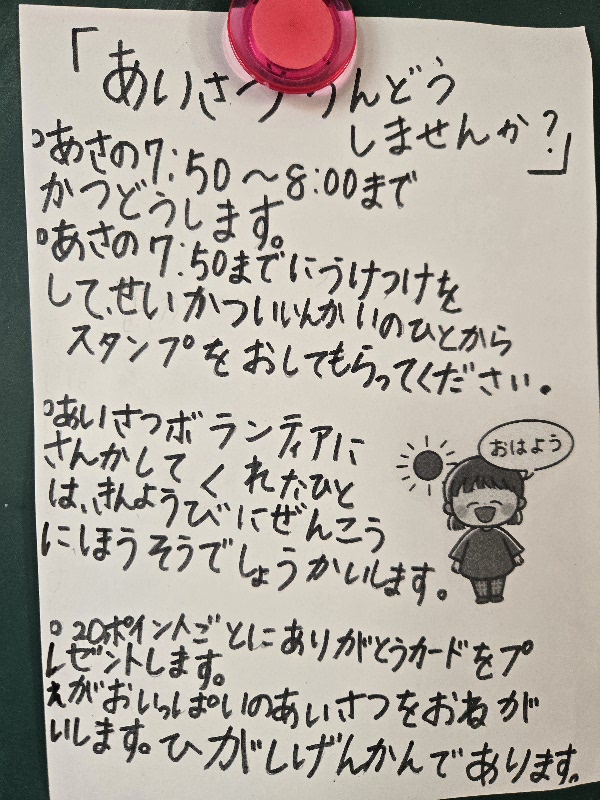 「あいさつうんどう
しませんか?」
。あさの7:50～8:00まで
かつどうします。
。あさの7:50までにうけつけを
して、せいかついいんかいのひとから
スタンプをおしてもらってください.
。あいさつボランティアに
さんかしてくれたひと
は、きんようびにぜんこう
にほうそうでしょうかいします。
おはよう
。20ポイントごとにありがとうカードをプ
レゼントします。
えがおいっぱいのあいさつをおねが
いします。ひがしげんかんであります。